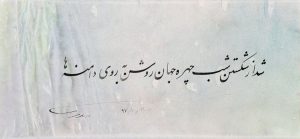 شد از شکستن شب چهره جهان روشن به روی دامنه ها